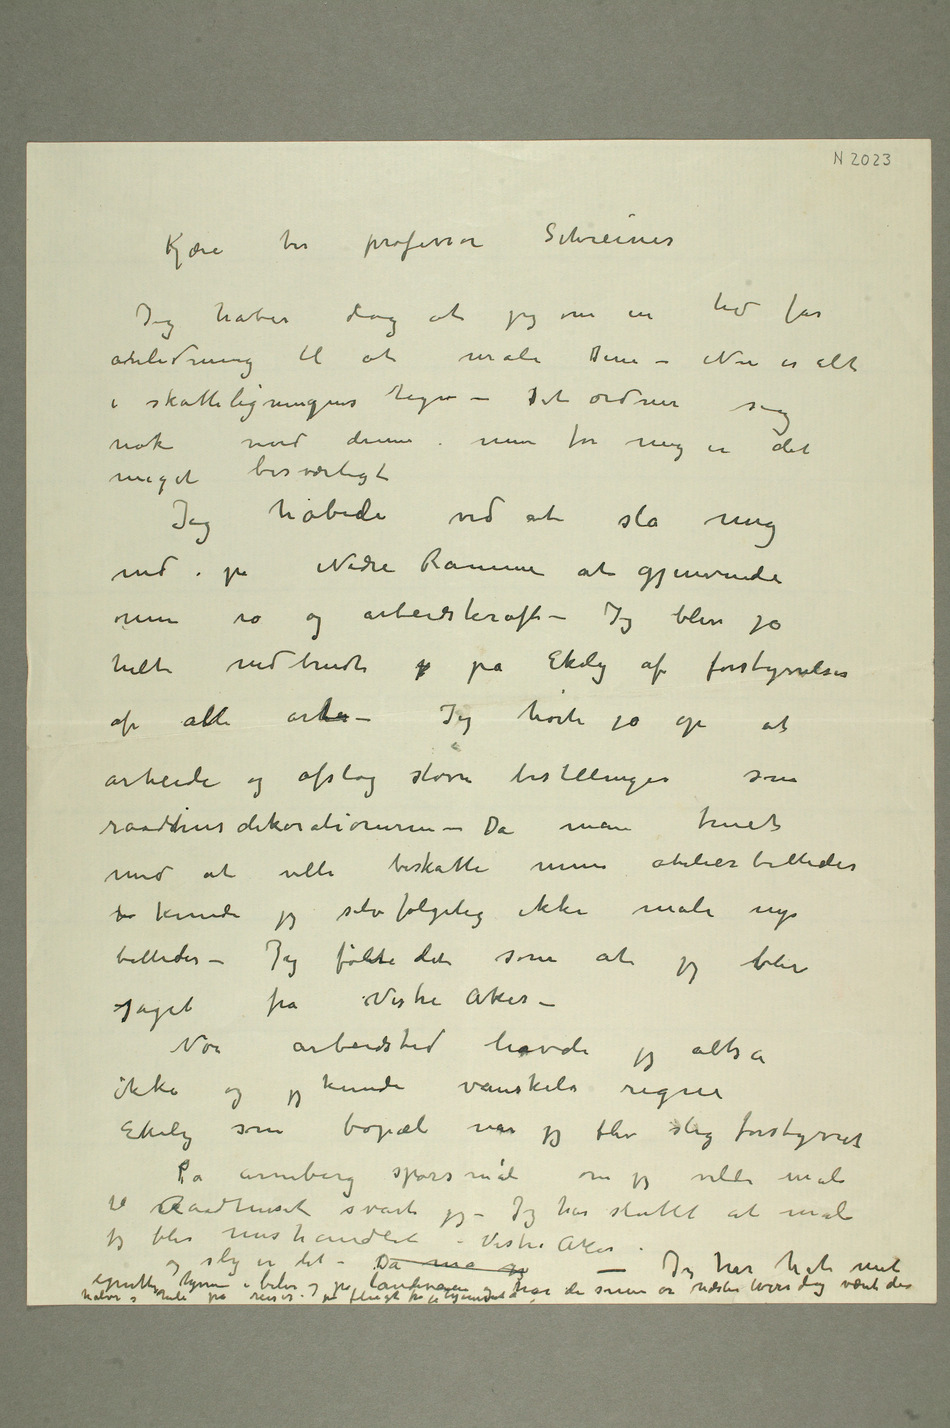 N 2023
Kjære hr professor Schreiner
Jeg håber dog at jeg om en tid får
anledning til at male Dem – Nu er alt
i skatteligningens tegn – Det ordner sig
nok med denne. men for mig er det
meget besværligt
Jeg håbede ved at slå mig
ned i på Nedre Ramme at gjenvinde
min ro og arbeidskraft – Jeg blev jo
helt nedbrudt på Ekely af forstyrrelser
af alle arter – Jeg hørte jo op at
arbeide og afslog større bestillinger som
raadhusdekorationerne – Da man truet
med at ville beskatte mine atelierbilleder
kunde jeg selvfølgelig ikke male nye
billeder – Jeg følte det som at jeg blev
jaget fra Vestre Aker –
Noe arbeidsted havde jeg altså
ikke og jeg kunde vanskelig regne
Ekely som bopæl når jeg blev slig forstyrret
På Arneberg spørsmål om jeg vilde male
til Raadhuset svarte jeg – Jeg har sluttet at male
jeg blev mishandlet i Vestre Aker.
og slig er det – Da må jeg – Jeg har hat mit
egentlige hjem i biler og på landeveien og har de somre or næsten hverdag været de
halve og hele på reiser. på flugt fra